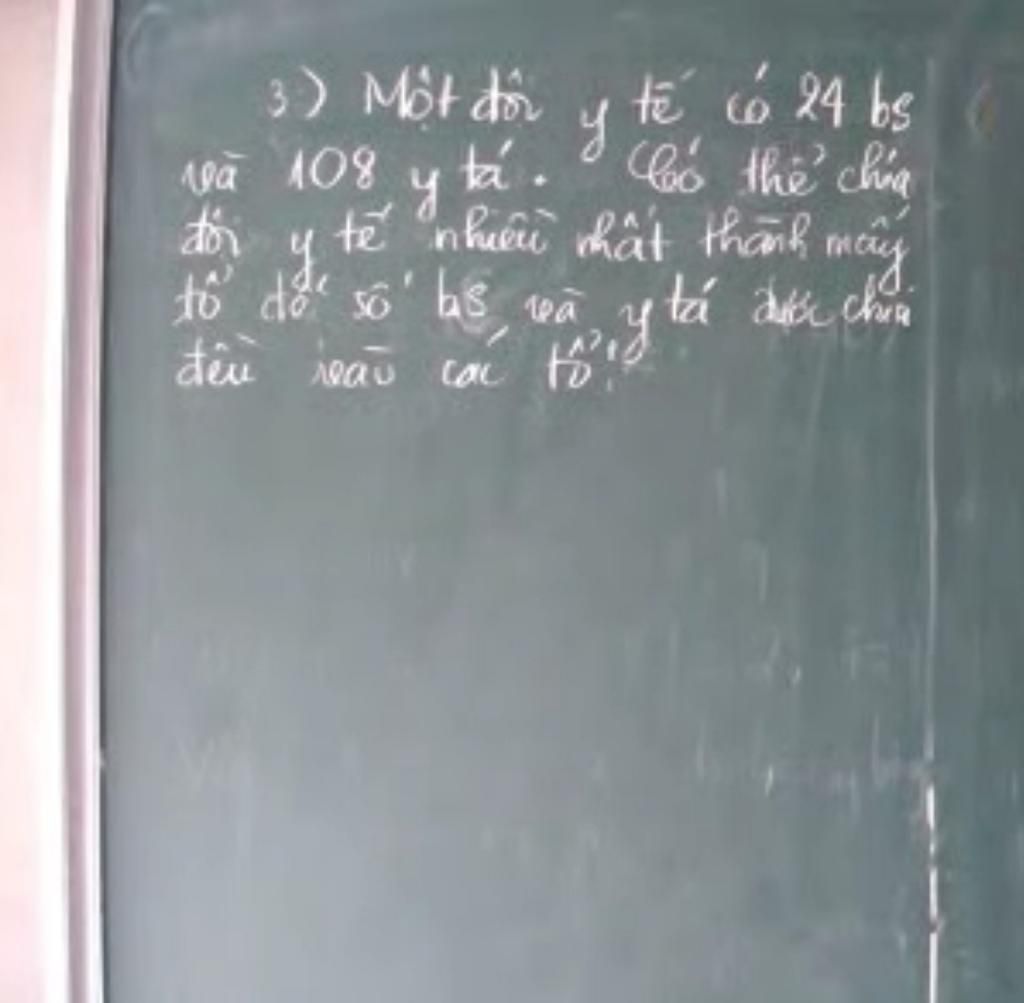 3) Một đội y tế có 24 bs
và 108 y tá. Có thể chia
đội y tế nhiều nhất thành mấy
tổ để số bs và y tá được chia
đều vào các tổ?